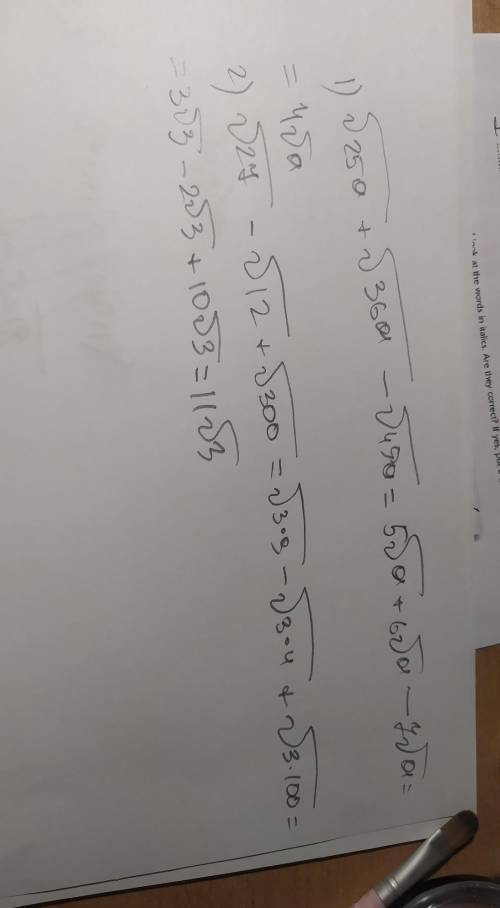 1) √25a + √36a − √49a = 5√a + 6√a − 7√a =
= 4√a
2) √27 − √12 + √300 = √3·9 − √3·4 + √3·100 =
= 3√3 − 2√3 + 10√3 = 11√3
at the words in italics. Are they correct? If yes, put a